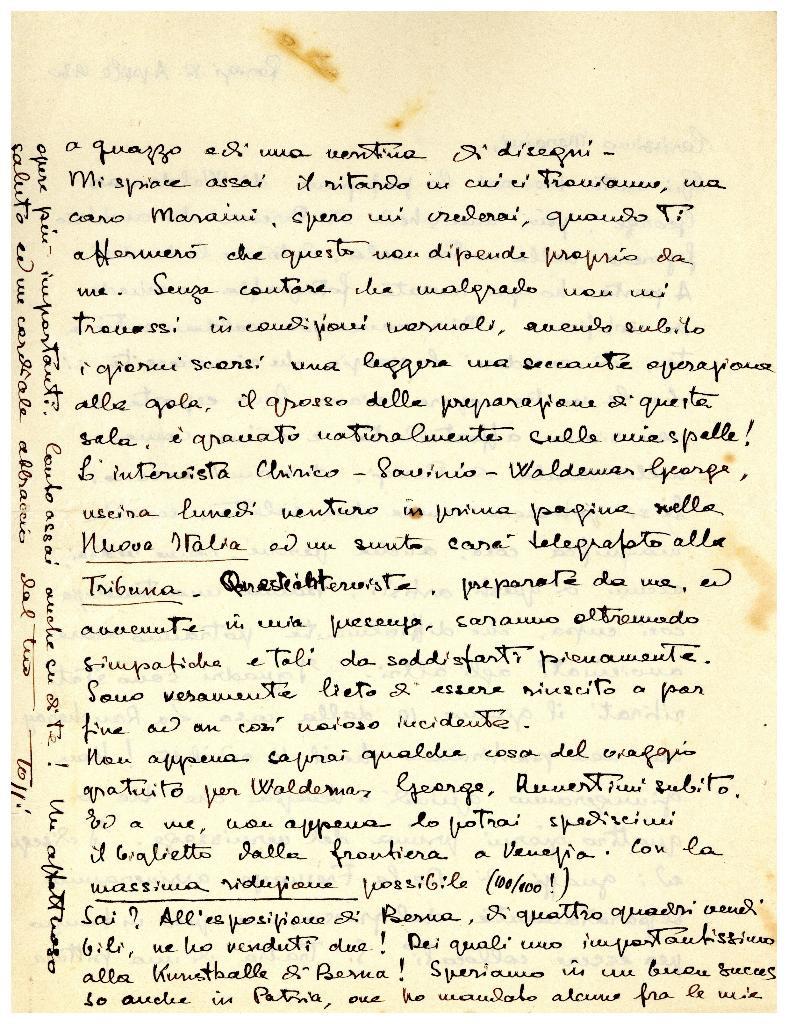 a guazzo e di una ventina di disegni -
Mi spiace assai il ritardo in cui ci troviamo, ma
caro Maraini, spero mi crederai, quando Ti
affermerò che questo non dipende proprio da
me. Senza contare che malgrado non mi
trovassi in condizioni normali, avendo subito
i giorni scorsi una leggera ma seccante operazione
alla gola, il grosso della preparazione di questa
sala, è gravato naturalmente sulle mie spalle!
L'intervista Chirico - Savinio - Waldemar George,
uscirà lunedì venturo in prima pagina nella
Nuova Italia ed un sunto sarà telegrafato alla
Tribuna. Queste interviste, preparate da me, ed
avvenute in mia presenza, saranno oltremodo
simpatiche e tali da soddisfarti pienamente.
Sono veramente lieto di essere riuscito a por
fine ad un così noioso incidente.
Non appena saprai qualche cosa del viaggio
gratuito per Waldemar George, Avvertimi subito.
Ed a me, non appena lo potrai spediscimi
il biglietto dalla frontiera a Venezia. Con la
massima riduzione possibile (100/100!)
Sai? All'esposizione di Berna, di quattro quadri vendi
bili, ne ho venduti due! Dei quali uno importantissimo
alla Kunsthalle di Berna! Speriamo in un buon succes
so anche in Patria, ove ho mandato alcune fra le mie
opere più importanti. Conto assai anche su di te! Un affettuoso
saluto ed un cordiale abbraccio dal tuo Tozzi